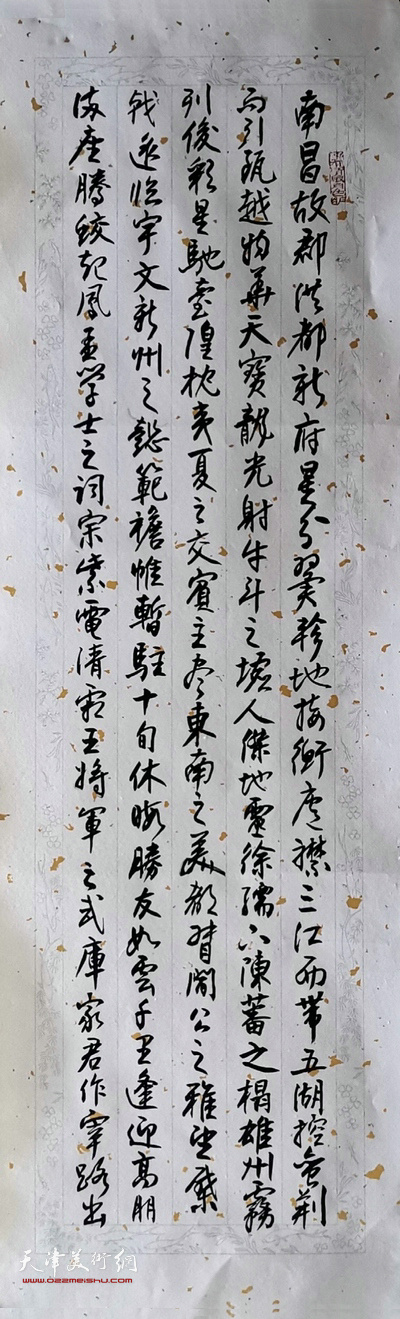 南昌故郡洪都新府星分翼軫地接衡廬襟三江而帶五湖控蛮荆
而引甌越物華天寶龍光射牛斗之墟人傑地靈徐孺下陳蕃之榻雄州霧
列俊彩星馳臺隍枕夷夏之交賓主尽東南之美都督閻公之雅望棨
戟遥临宇文新州之懿範襜帷暫駐十旬休暇勝友如雲千里逢迎高朋
满座騰蛟起鳳孟学士之词宗紫電清霜王将軍之武庫家君作宰路出
天津美術網
www.022meishu.com